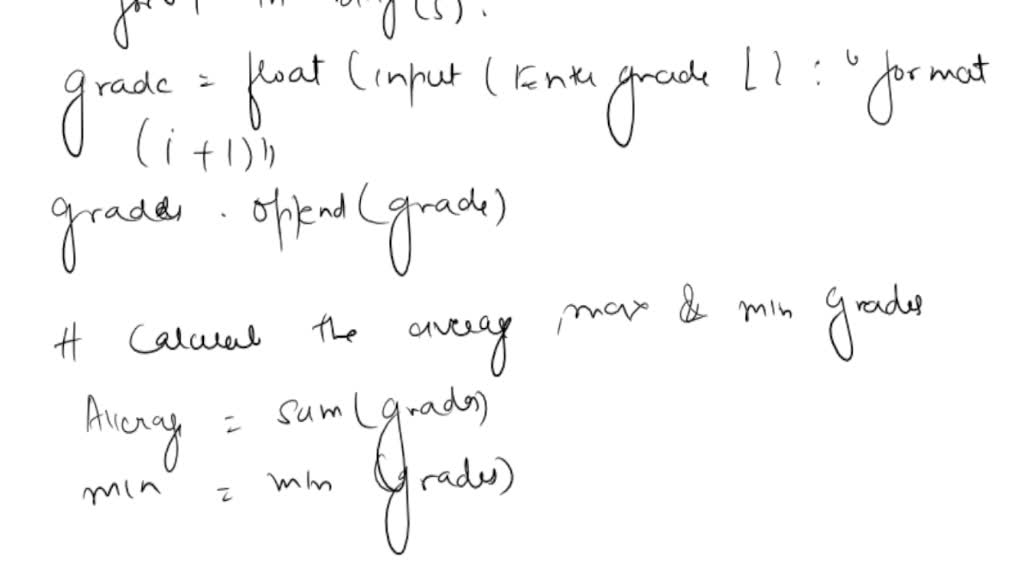 for i in
grade = float (input (Enter grade [] : " format
(i+1)))
grades . append (grade)
# Calculate the average , max & min Grades
Average = sum (grades)
min = min (grades)